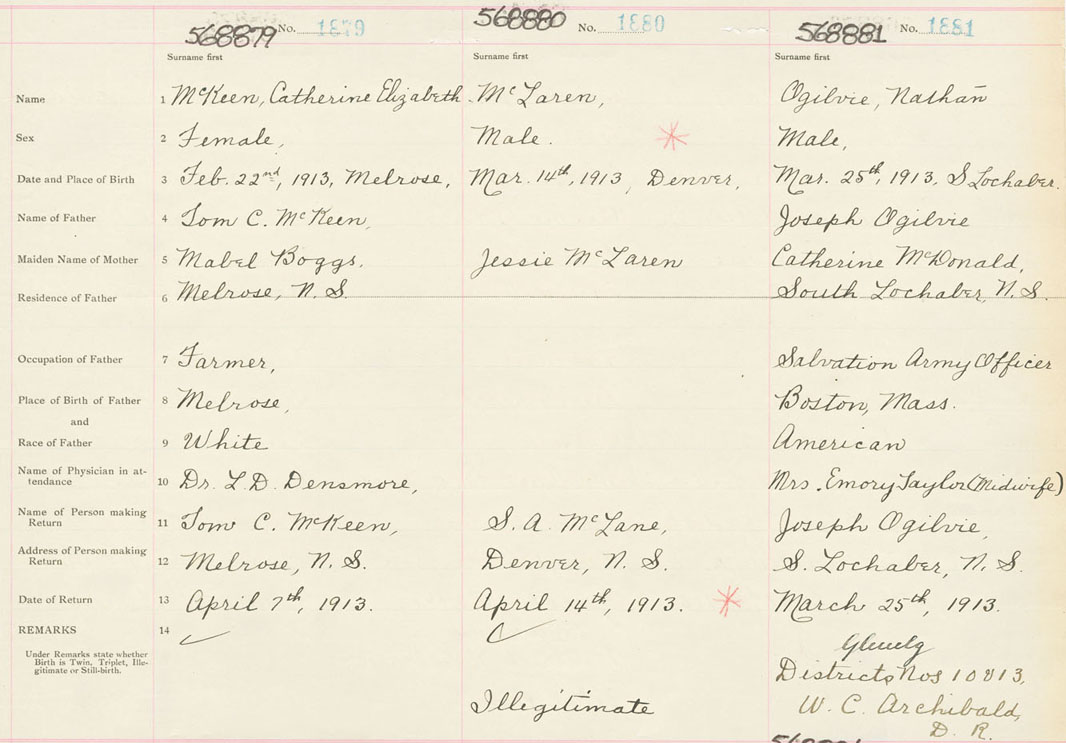 568879 No. 1879 568880 No. 1880 568881 No. 1881
Surname first Surname first Surname first
Name 1 McKeen, Catherine Elizabeth McLaren, Ogilvie, Nathan
Sex 2 Female, Male. Male,
Date and Place of Birth 3 Feb. 22nd, 1913, Melrose, Mar. 14th, 1913, Denver, Mar. 25th, 1913, S Lochaber.
Name of Father 4 Tom C. McKeen, Joseph Ogilvie
Maiden Name of Mother 5 Mabel Boggs. Jessie McLaren Catherine McDonald,
Residence of Father 6 Melrose, N. S. South Lochaber, N. S.
Occupation of Father 7 Farmer, Salvation Army Officer
Place of Birth of Father 8 Melrose, Boston, Mass.
and
Race of Father 9 White American
Name of Physician in at-
tendance 10 Dr. L. D. Densmore, Mrs. Emory Taylor (Midwife)
Name of Person making
Return 11 Tom C. McKeen, S. A. McLane, Joseph Ogilvie,
Address of Person making
Return 12 Melrose, N. S. Denver, N. S. S. Lochaber, N. S.
Date of Return 13 April 7th, 1913. April 14th, 1913. March 25th, 1913.
REMARKS 14
Under Remarks state whether
Birth is Twin, Triplet, Ille-
gitimate or Still-birth.
Illegitimate
Glenelg
Districts Nos 10 & 13,
W. C. Archibald,
D. R.